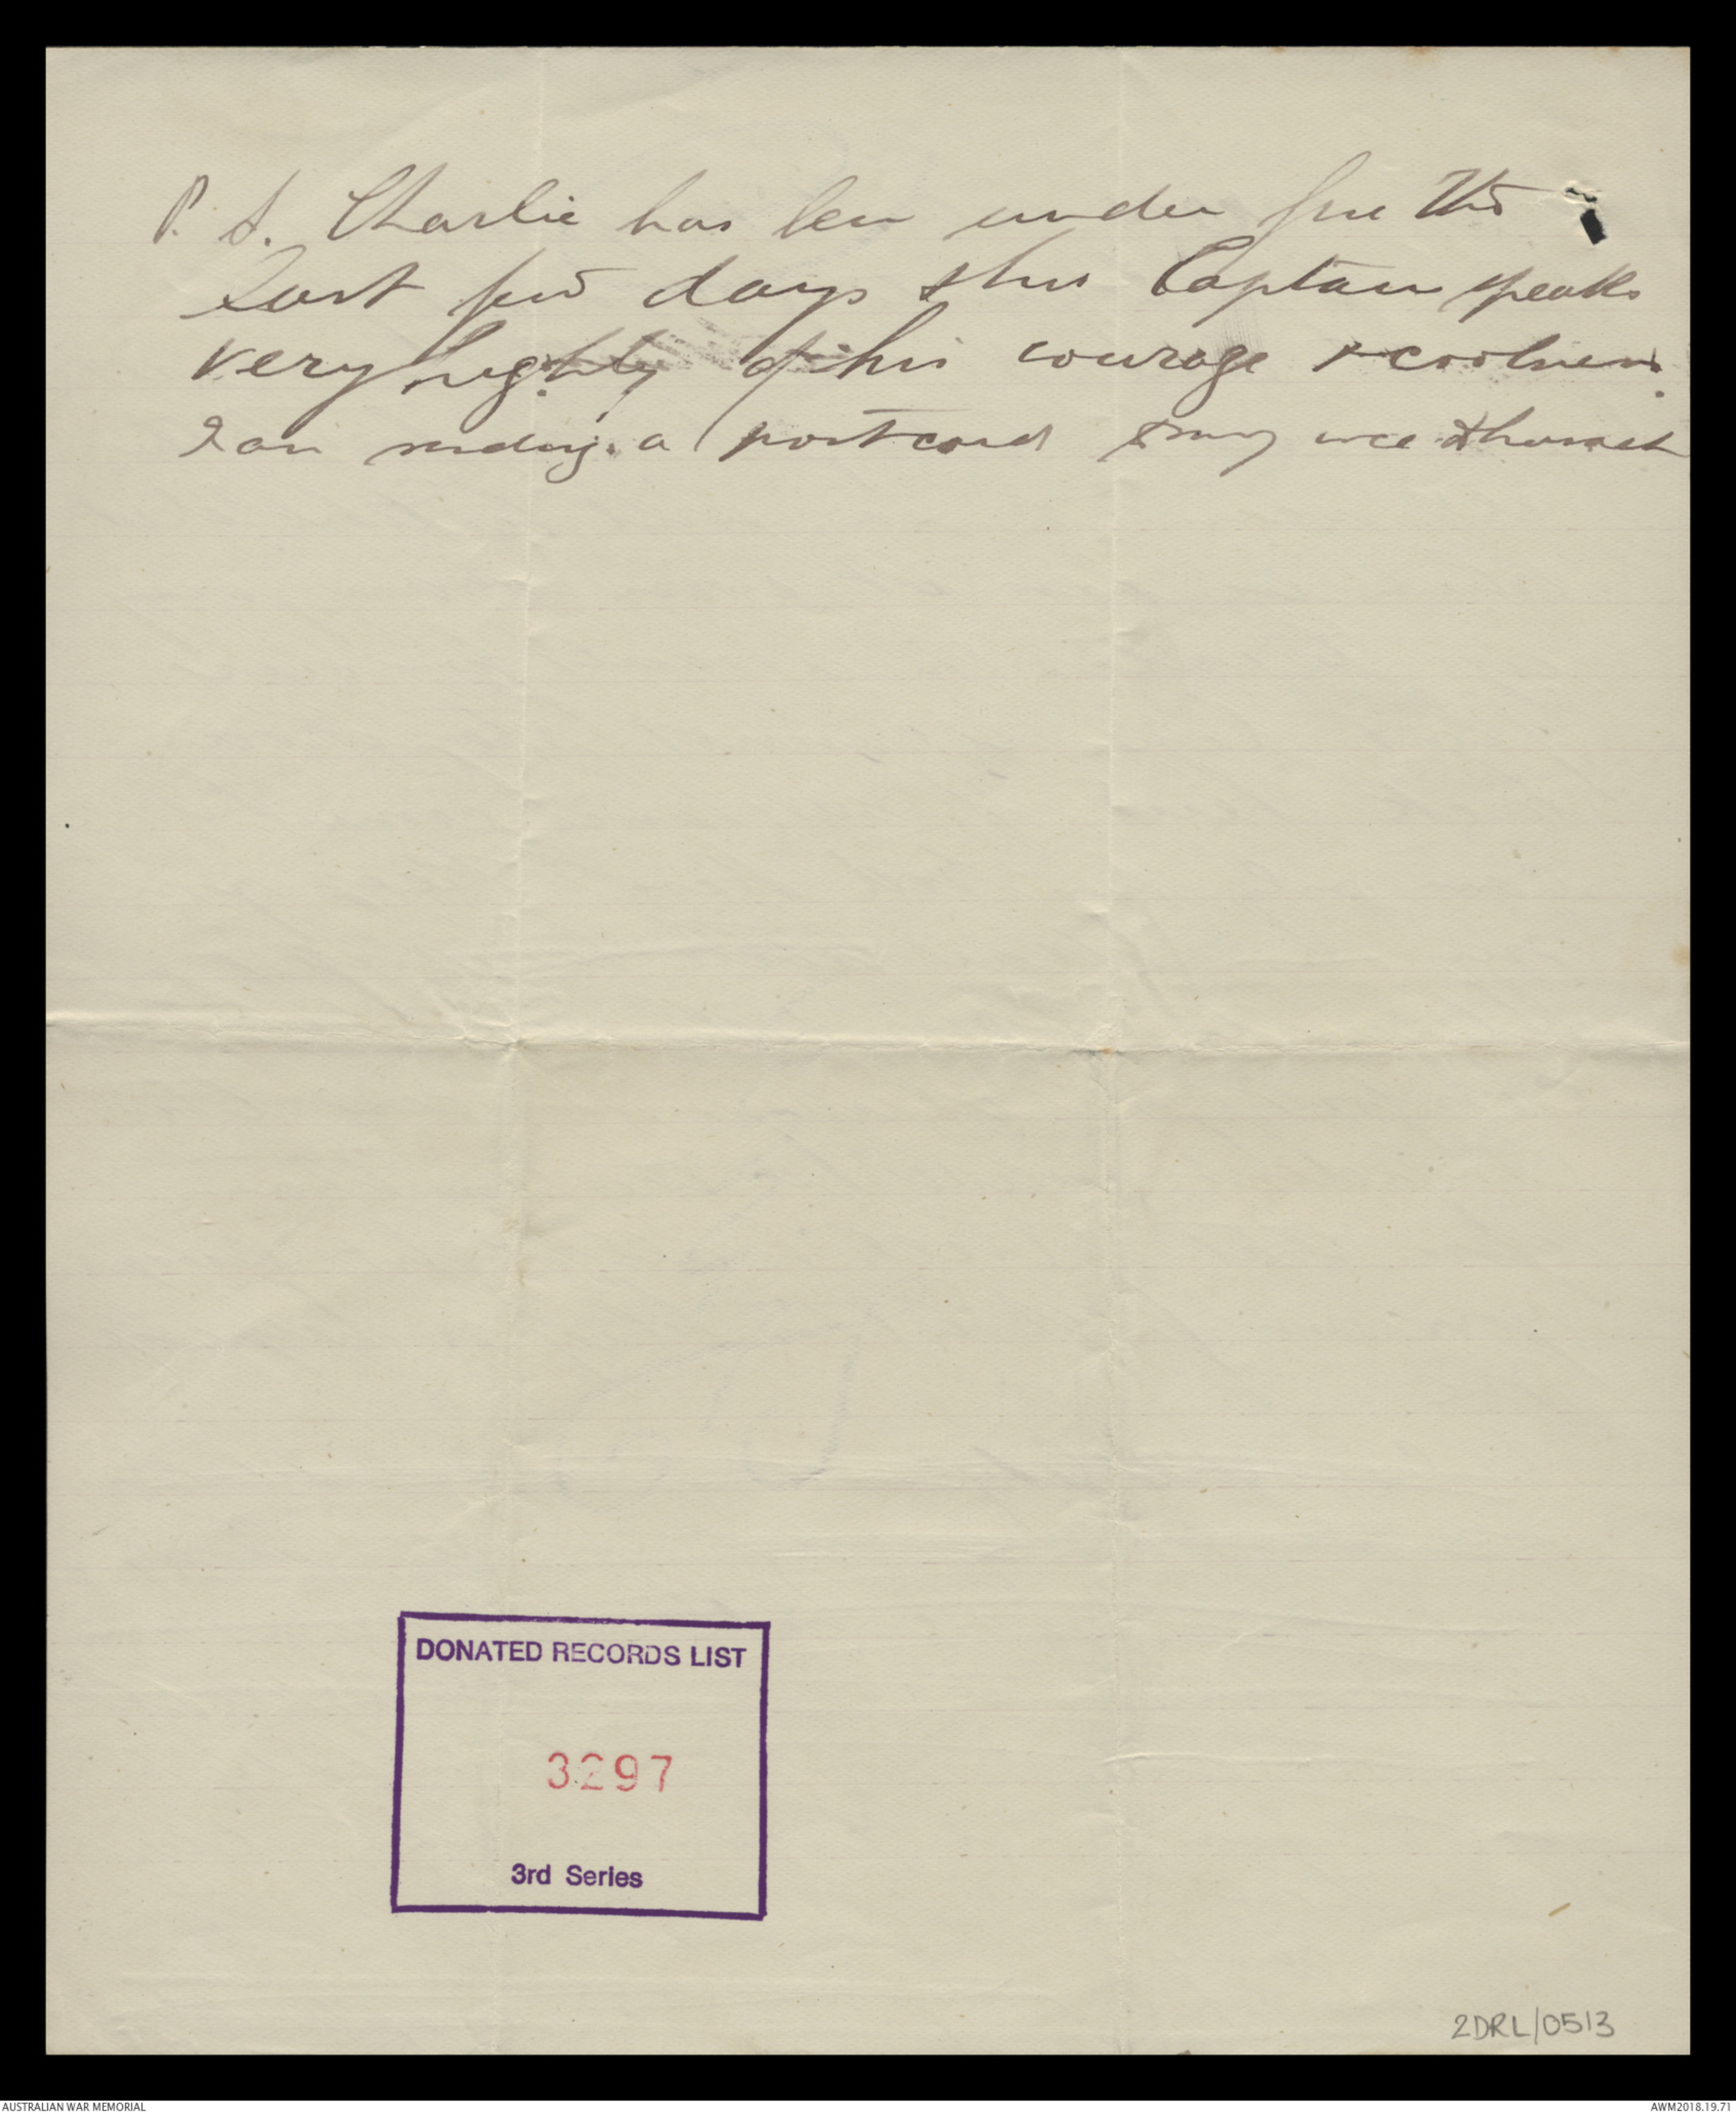 P. S. Charlie has been under fire this
last few days & his Captain speaks
very highly of his courage & coolness.
I am sending a postcard to my wee
DONATED RECORDS LIST
3297
3rd Series
2DRL/0513
AUSTRALIAN WAR MEMORIAL
AWM2018.19.71